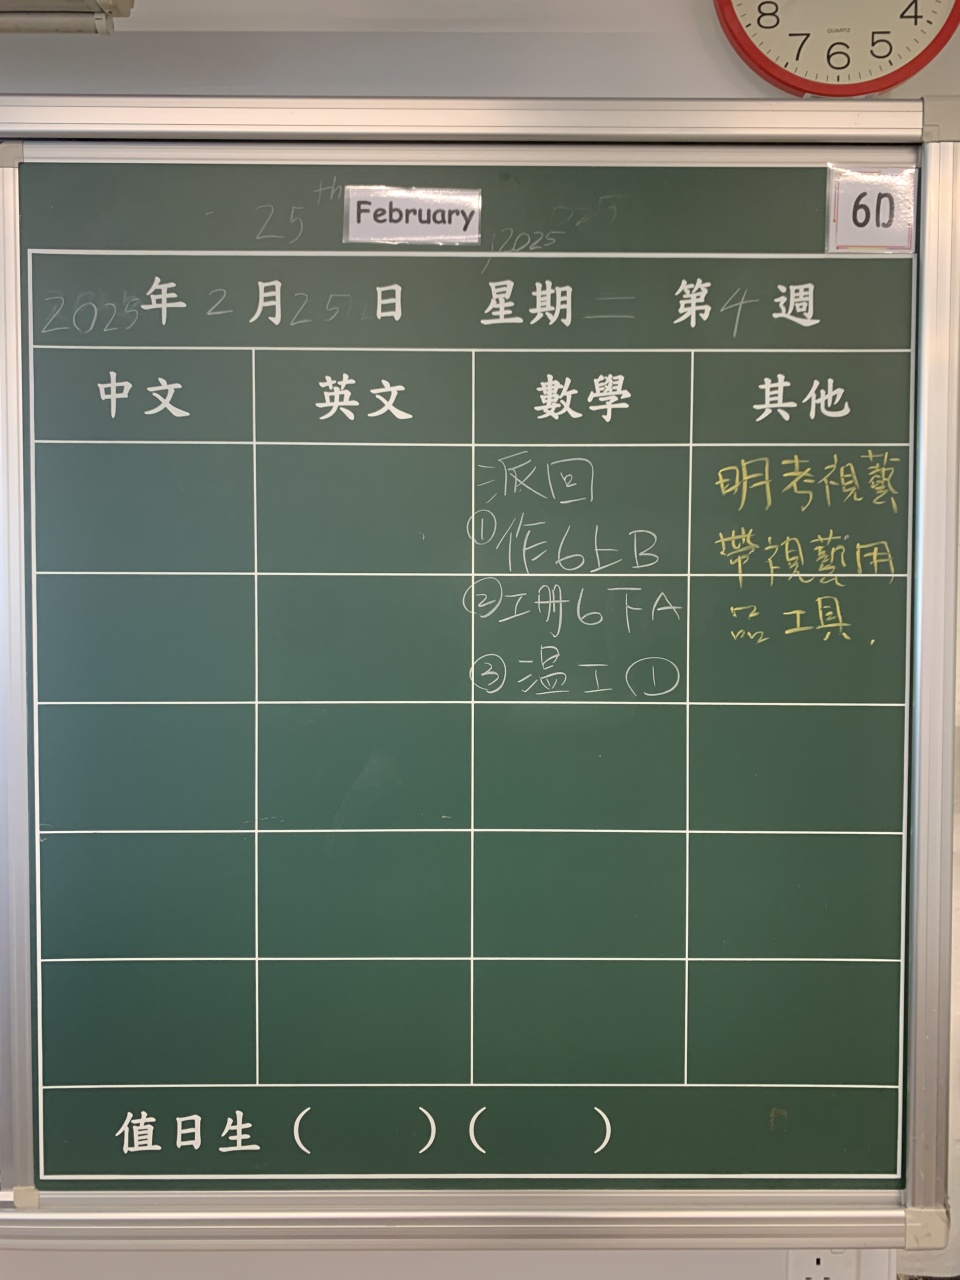 8 7 6 5 4
QUARTZ
25th February, 2025
6D
2025年2月25日 星期二 第4週
中文 英文 數學 其他
派回
①作6上B
②工册6下A
③温工①
明考視藝
帶視藝用
品工具.
值日生( )( )